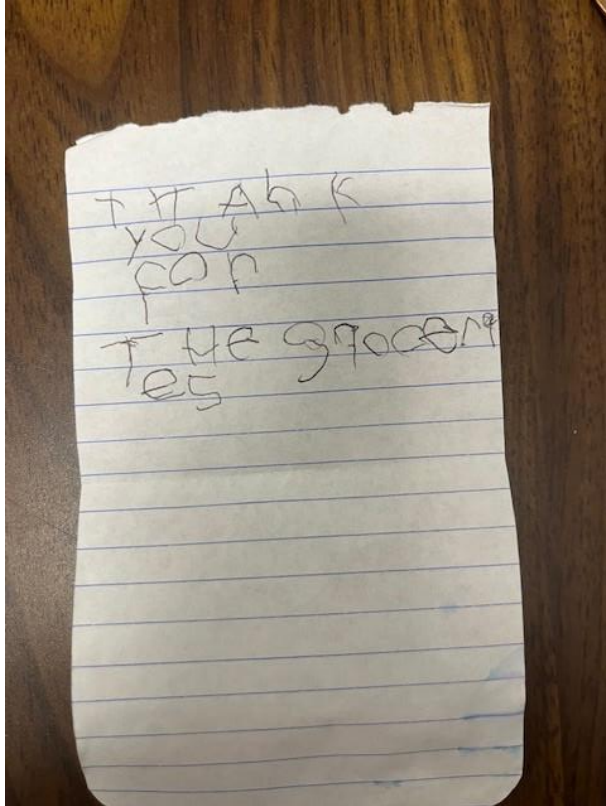 THANK
you
For
THe groceri
es